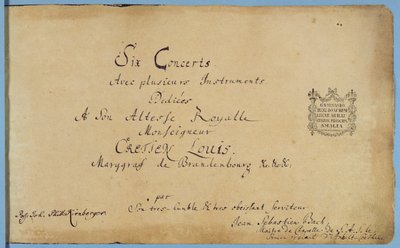 Six Concerts
Avec plusieurs Instruments
Dediées
A Son Altesse Royalle
Monseigneur
CRETIEN LOUIS.
Marggraf de Brandenbourg &c.&c.&c.
par
Son tres-humble & tres obeissant Serviteur
Jean Sebastien Bach
Maitre de Chapelle de S. A. S. le
Prince regnant d'Anhalt-Coethen.
Kirnberger.
GYMNASIO
AMALIA